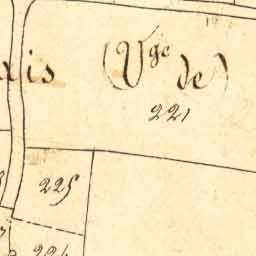 is (Vge de)
221
225
224